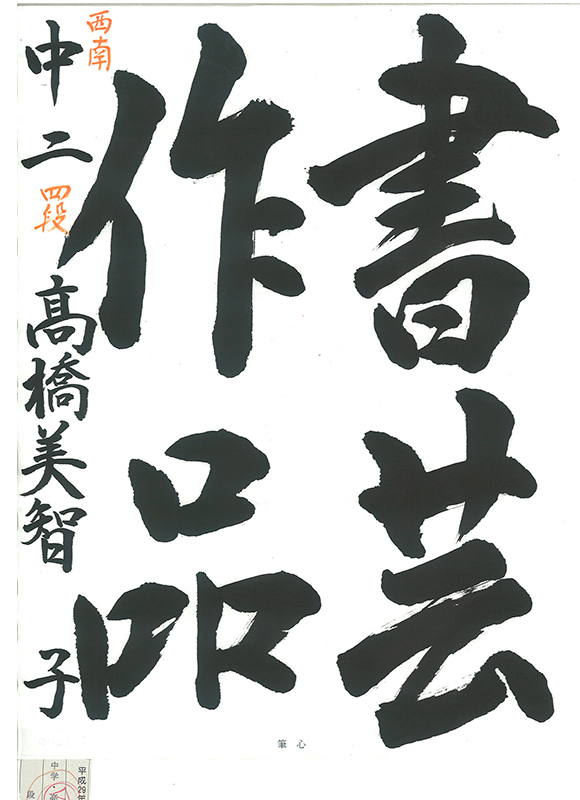 書芸
作品
西南
中二 四段 髙橋美智子
心筆
平成29年
中学
段